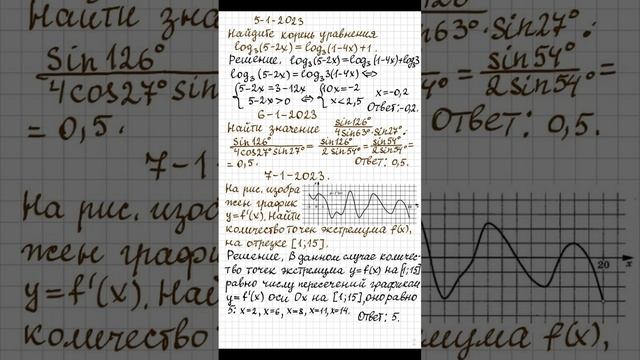 5-1-2023
Найдите корни уравнения
log₃(5-2x) = log₃(1-4x)+1.
Решение. log₃(5-2x)=log₃(1-4x)+log₃3
log₃(5-2x)=log₃3(1-4x) ⇔
{5-2x=3-12x ⇔ {10x=-2
5-2x>0 x<2,5 x=-0,2
Ответ:-0,2.
6-1-2023
Найти значение sin126°/4sin63°·sin27°:
sin126°/4cos27°sin27° = sin126°/2sin54° = sin54°/2sin54° =
=0,5. Ответ: 0,5.
7-1-2023.
На рис. изобра
жен график
y=f'(x). Найти
количество точек экстремума f(x),
на отрезке [1;15].
Решение. В данном случае количес-
тво точек экстремума y=f(x) на [1;15]
равно числу пересечений графикам
y=f'(x) оси Ox на [1;15], оно равно
5: x=2, x=6, x=8, x=11, x=14.
Ответ: 5.
sin126°
4cos27° sin
= 0,5.
7-1-
На рис. изо
жен график
y=f'(x). Най
количество
sin63° sin27°:
= sin54°/2sin54° =
Ответ: 0,5.
x
20
мума f(x),